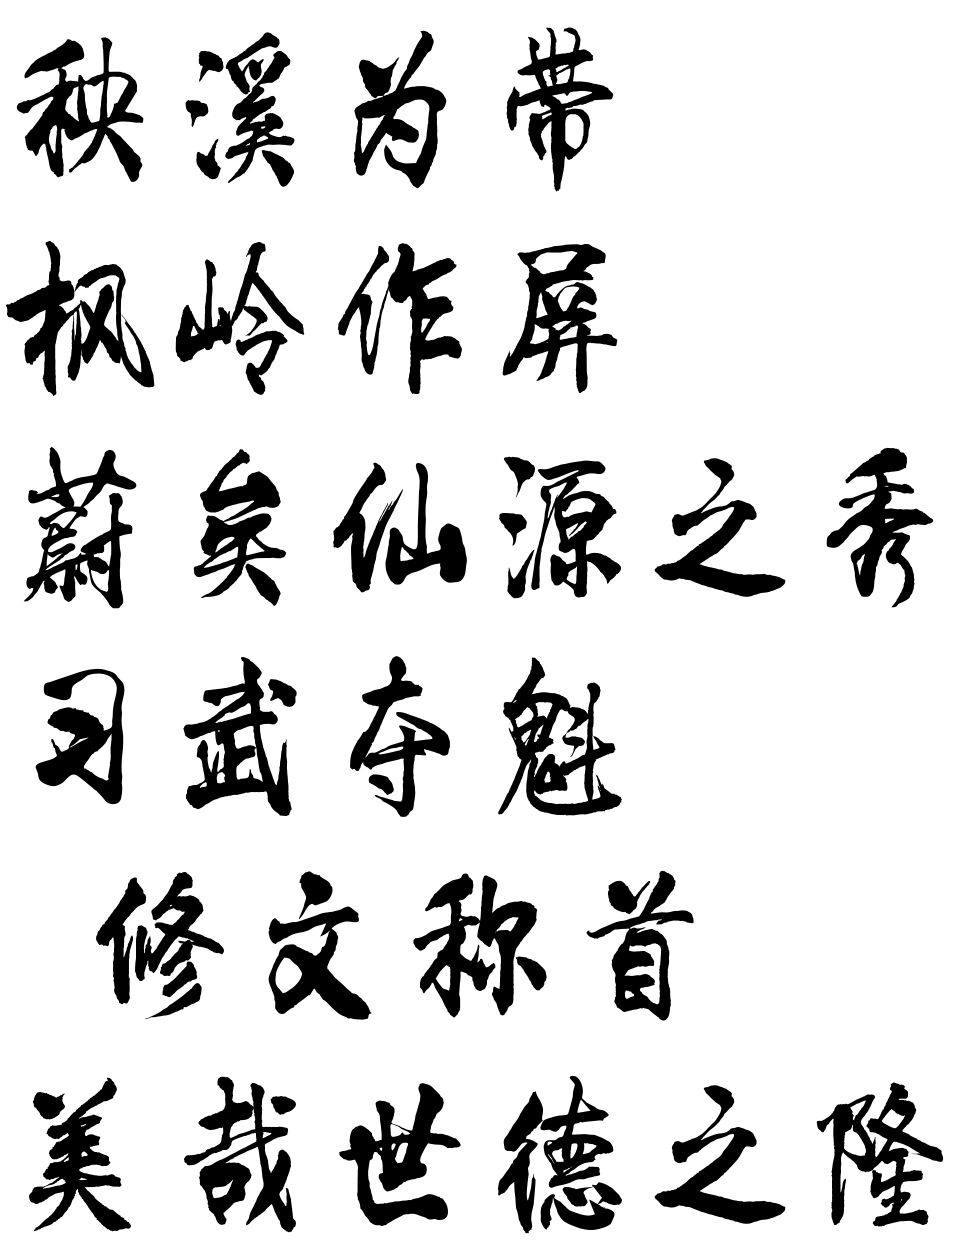 秧溪为带
枫岭作屏
蔚矣仙源之秀
习武夺魁
修文称首
美哉世德之隆